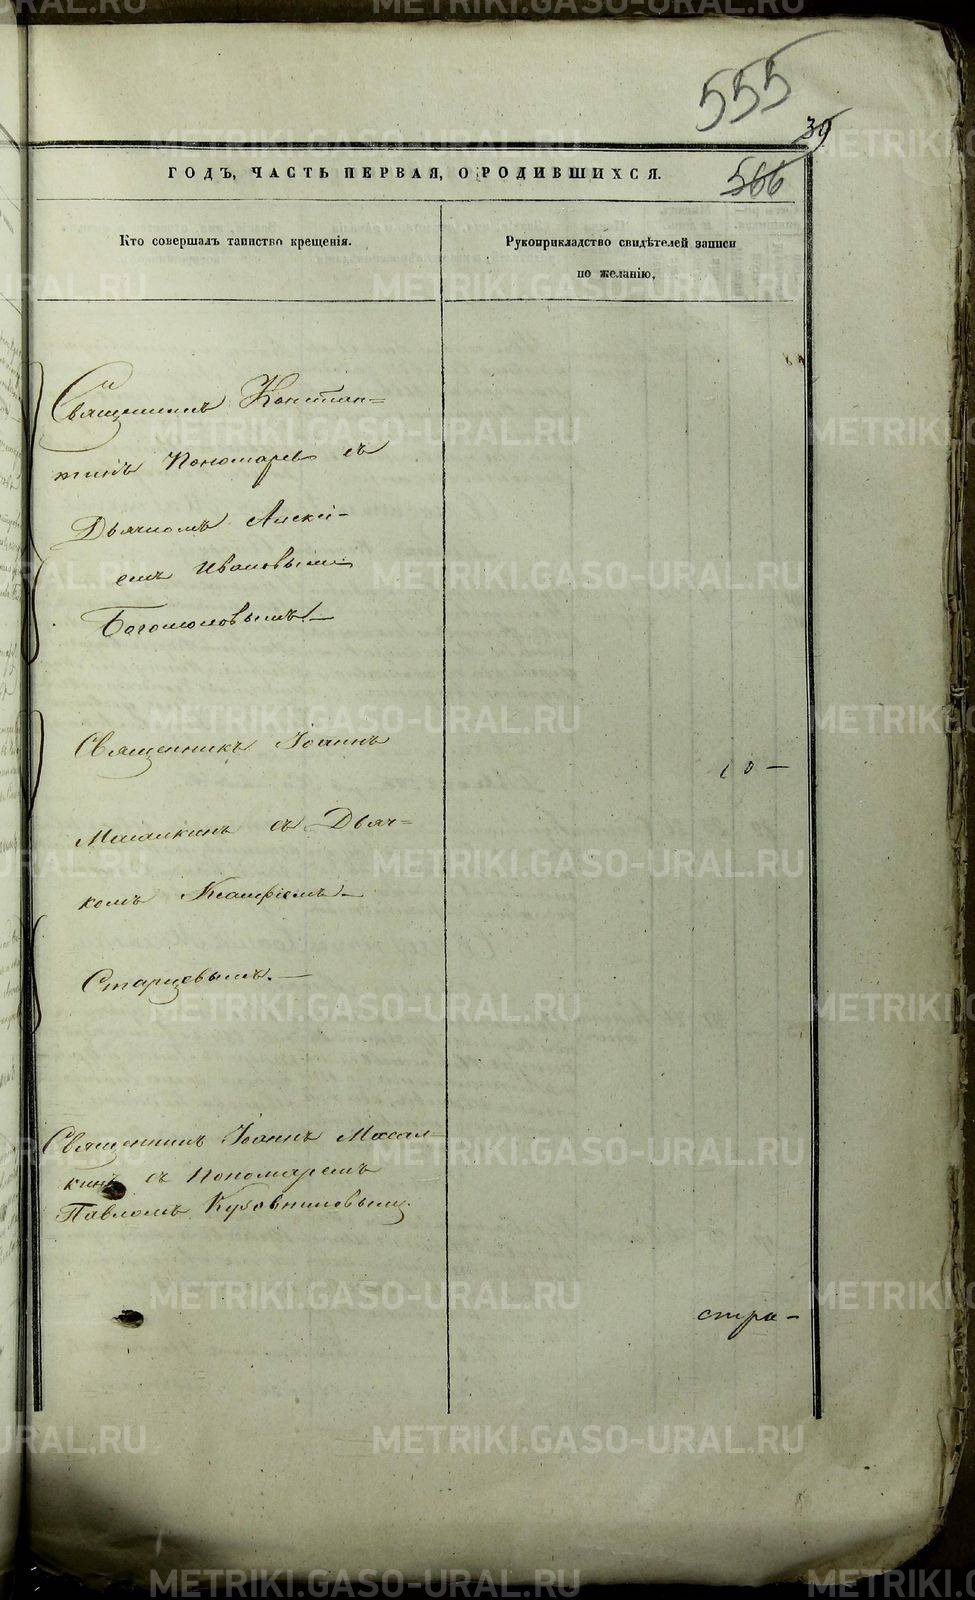 555
39
ГОДЪ, ЧАСТЬ ПЕРВАЯ, О РОДИВШИХСЯ.
566
Кто совершалъ таинство крещенія.
Рукоприкладство свидѣтелей записи
по желанію.
Священникъ Констан=
тинъ Пономарев съ
Дьячкомъ Алексі-
емъ Ивановымъ
Богомоловымъ. —
Священникъ Іоаннъ
Масалкинъ съ Дьяч=
комъ
Старцевымъ. —
Священникъ Іоаннъ Масал-
кинъ съ Пономаремъ
Павломъ Кузовниковымъ.
стра-
METRIKI.GASO-URAL.RU